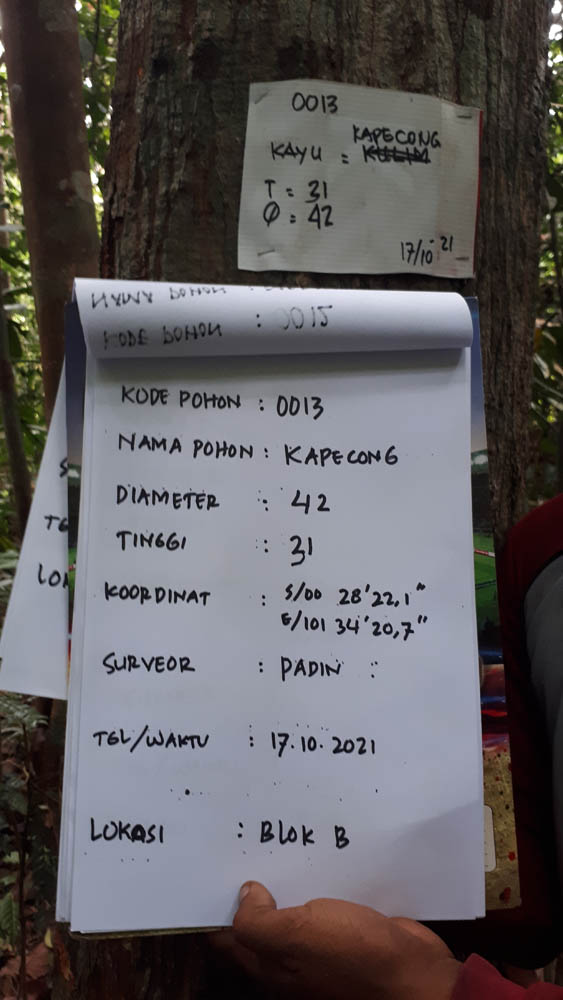 0013
KAPECONG
KAYU = KULIM
T = 31
Ø = 42
17/10-21
NAMA POHON :
KODE POHON : 0015
KODE POHON : 0013
NAMA POHON : KAPECONG
DIAMETER : 42
TINGGI : 31
KOORDINAT : S/00 28'22,1"
E/101 34'20,7"
SURVEOR : PADIN :
TGL/WAKTU : 17.10.2021
LOKASI : BLOK B